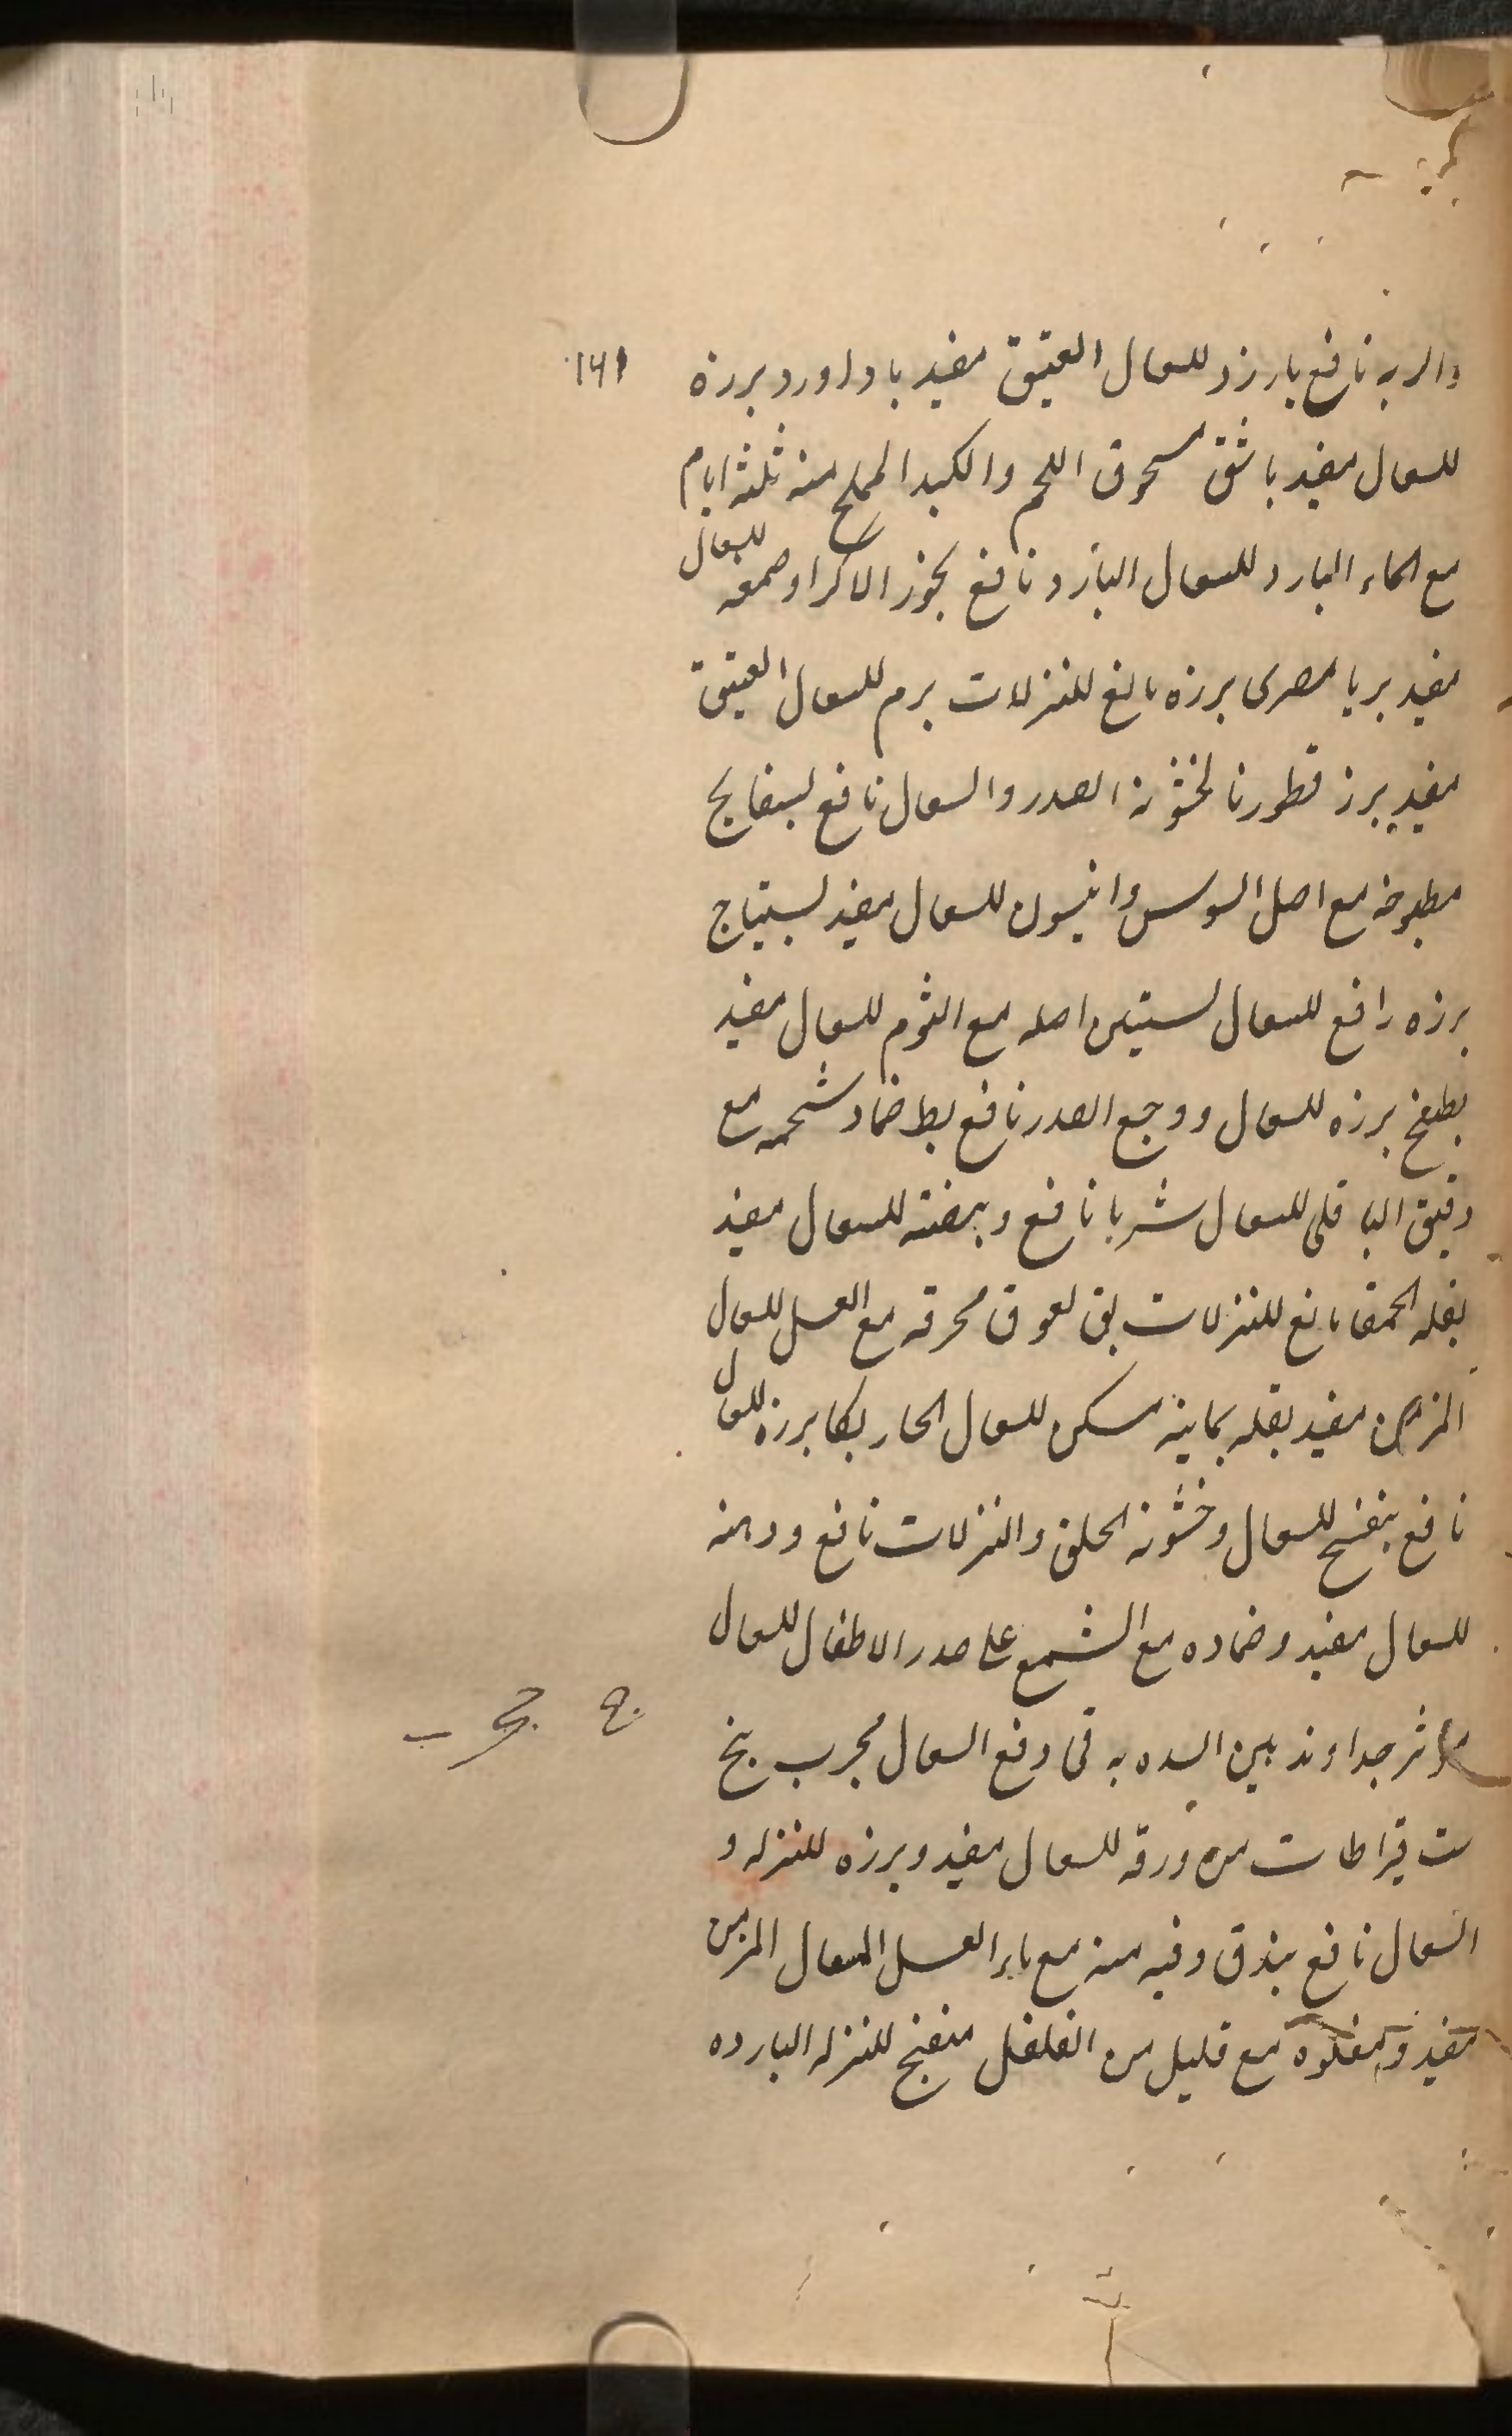 والربه نافع بارزد للسعال العتيق مفيد باداورد برزه
١٤١
للسعال مفيد باشق مسحوق اللحم والكبد المملح منه ثلثه ايام
مع الماء البارد للسعال البارد نافع بجوز الاكراد صمغه للسعال
مفيد بريا مصرى برزه مانع للنزلات برم للسعال العتيق
مفيد برز قطورنا لخشونه الصدر والسعال نافع بسفايج
مطبوخه مع اصل السوس وانيسون للسعال مفيد بستياج
برزه رافع للسعال اصله مع الثوم للسعال مفيد
بطيخ برزه للسعال ووجع الصدر نافع بط ضماد شحمه مع
دقيق الباقلى للسعال شربا نافع وبيضته للسعال مفيد
بقله الحمقا مانع للنزلات بق لعوق محرقه مع العسل للسعال
المزمن مفيد بقله يمانيه مسكن للسعال الحار بكا برزه للسعال
نافع بنفسج للسعال وخشونه الحلق والنزلات نافع ودهنه
للسعال مفيد وضماده مع الشمع على صدر الاطفال للسعال
موثر جدا وتدهين السده به فى دفع السعال مجرب بنج
ست قيراطات من ورقه للسعال مفيد وبرزه للنزله و
السعال نافع بندق وفيه منه مع ماء العسل السعال المزمن
مفيد ومقلوه مع قليل من الفلفل منضج للنزله البارده